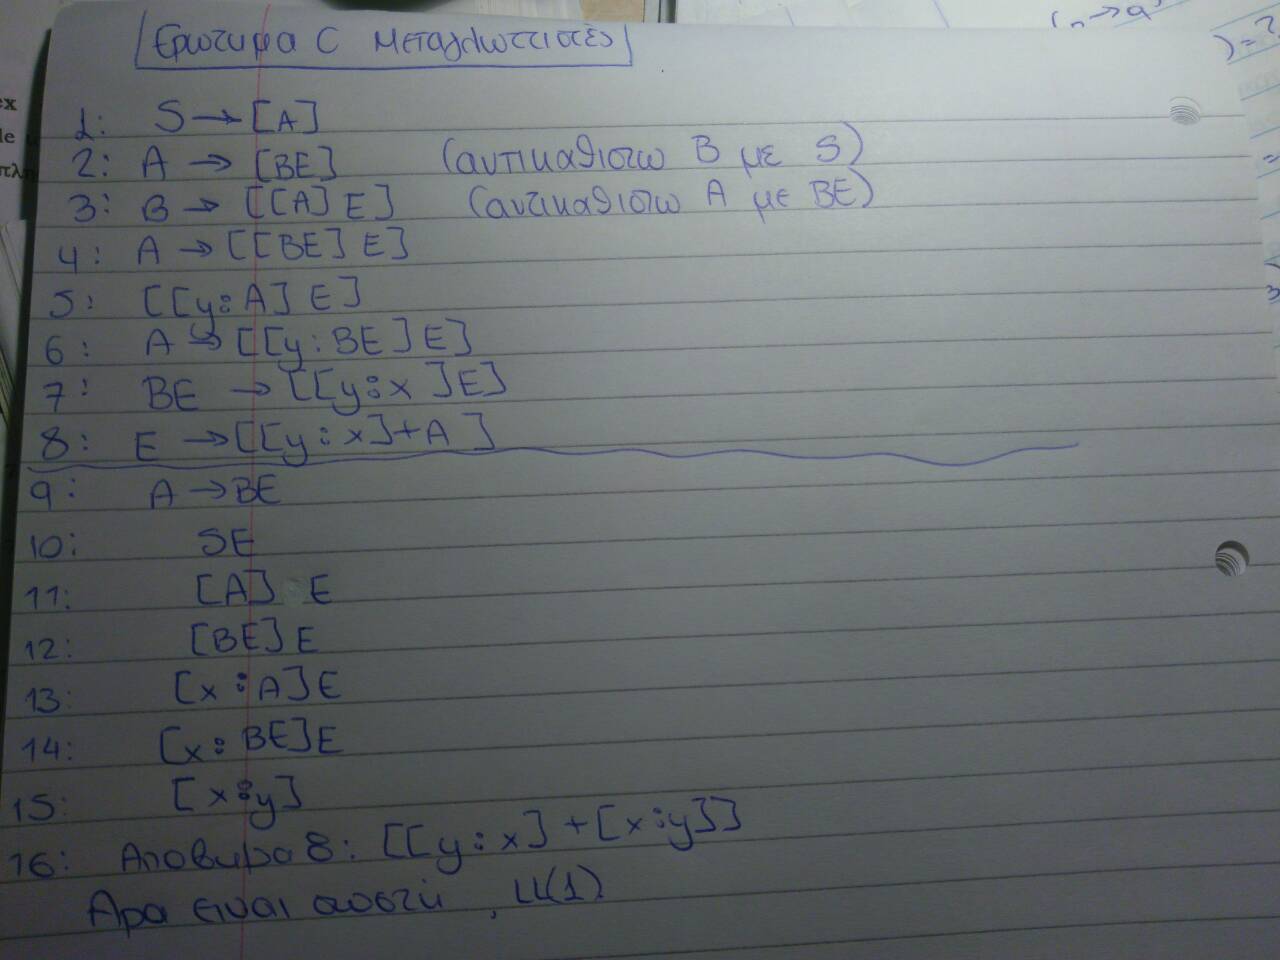 Ερωτημα C Μεταγλωττιστές
1: S → [A]
2: A → [BE] (αντικαθιστω B με S)
3: B → [[A] E] (αντικαθιστω A με BE)
4: A → [[BE] E]
5: [[y:A] E]
6: A → [[y:BE]E]
7: BE → [[y:x]E]
8: E → [[y:x]+A]
9: A → BE
10: SE
11: [A] E
12: [BE]E
13: [x:A]E
14: [x:BE]E
15: [x:y]
16: Απο βημα 8: [[y:x]+[x:y]]
Αρα ειναι σωστή, LL(1)